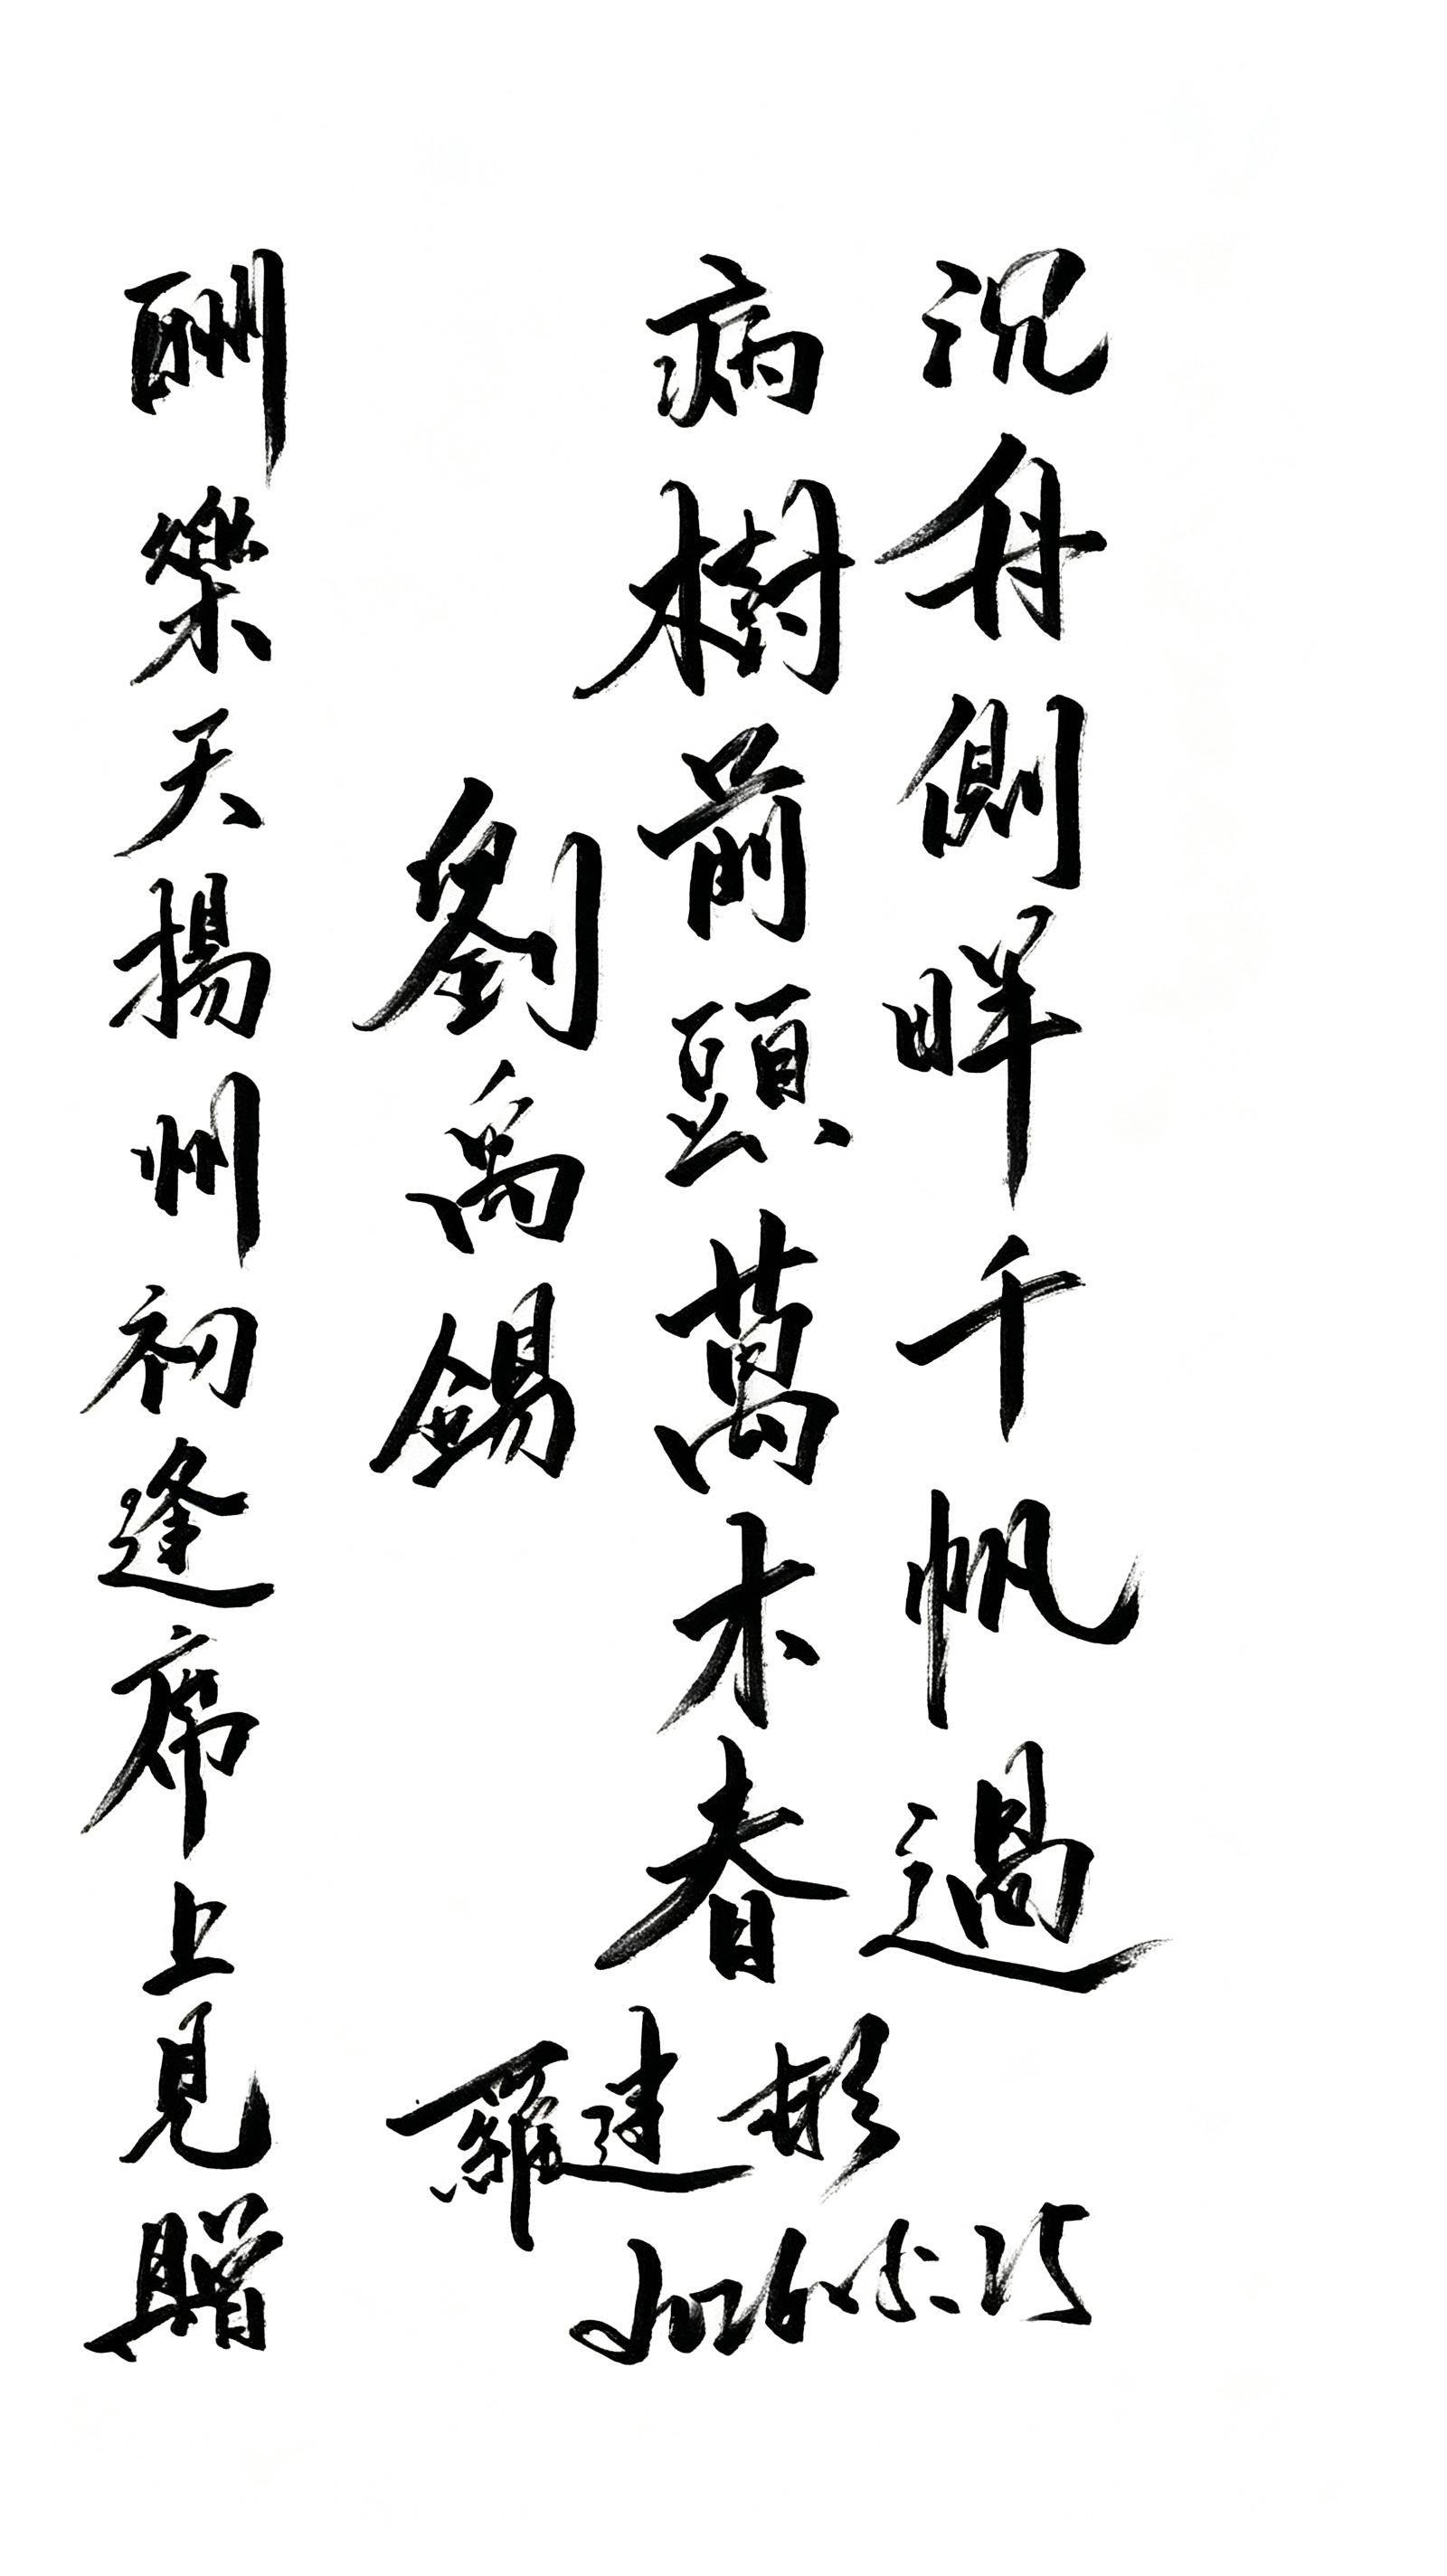 沉舟側畔千帆過
病樹前頭萬木春
劉禹錫
酬樂天揚州初逢席上見贈
羅建彬